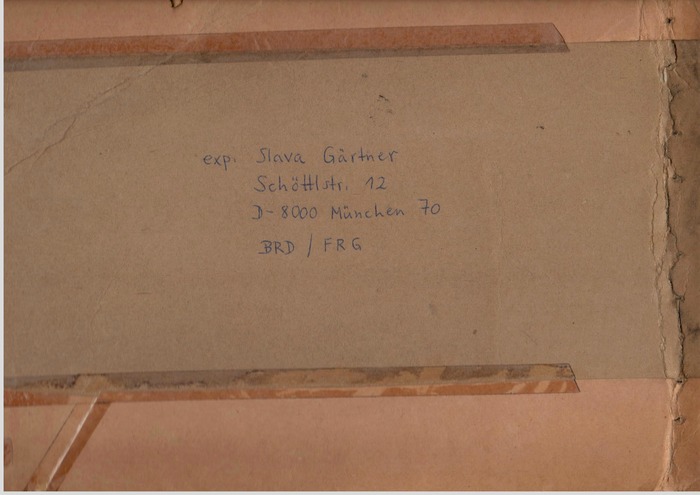 exp. Slava Gärtner
Schöttlstr. 12
D-8000 München 70
BRD / FRG